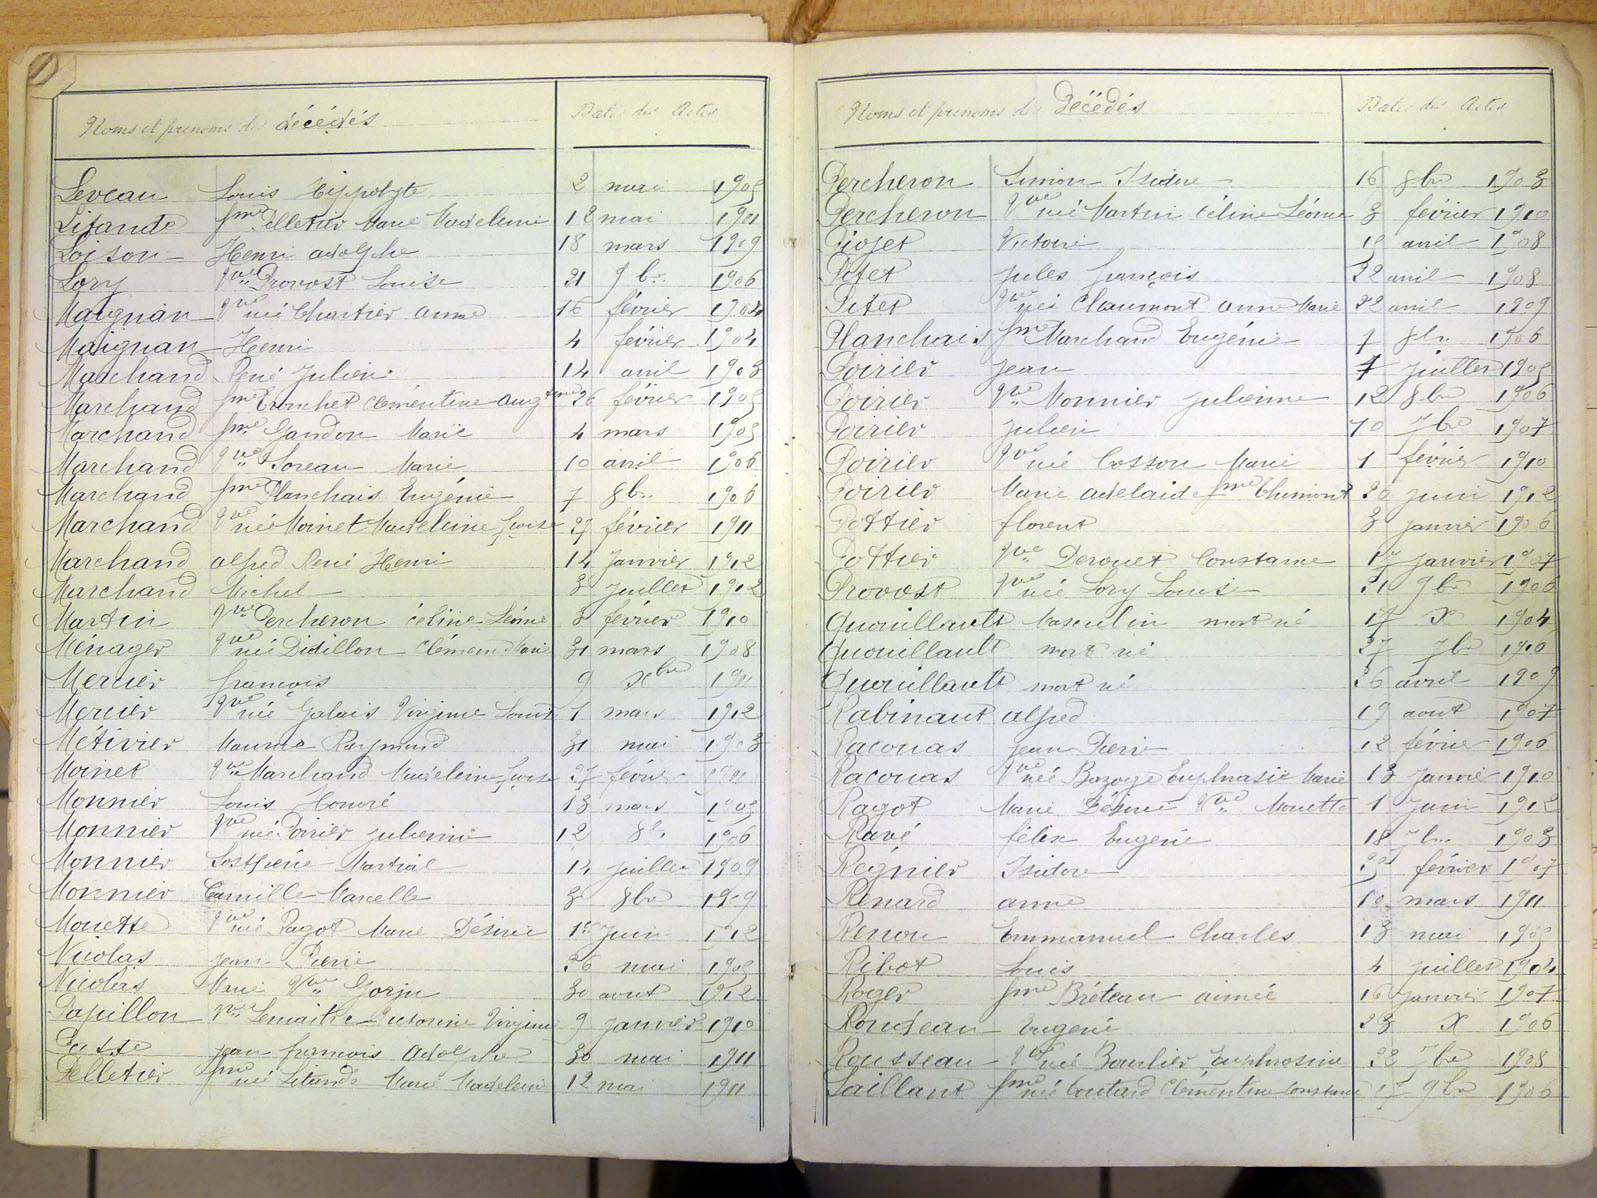 Noms et prénoms des décédés Date des Actes
Leveau Louis Hippolyte 2 mai 1905
Litande fme Pelletier Marie Madeleine 12 mai 1911
Loison Henri adolphe 18 mars 1909
Lory Vve Provost Louise 21 9bre 1906
Maignan Vve née Chartier anne 16 février 1904
Maignan Henri 4 février 1904
Marchand René Julien 14 avril 1903
Marchand fme Tronchet Clémentine Augtine 26 février 1905
Marchand fme Gandon Marie 4 mars 1905
Marchand Vve Soreau Marie 10 avril 1906
Marchand fme Planchais Eugénie 7 8bre 1906
Marchand Vve née Moinet Madeleine fçoise 27 février 1911
Marchand alfred René Henri 14 Janvier 1912
Marchand Michel 3 juillet 1912
Martin Vve Percheron Céline Léonie 3 février 1910
Ménager Vve née Didillon Clémence Marie 31 mars 1908
Mercier françois 9 Xbre 1911
Mercier Vve née Galais Virginie Louise 1 mars 1912
Métivier Maurice Raymond 31 mai 1903
Moinet Vve Marchand Madeleine fçoise 27 février 1911
Monnier Louis Honoré 13 mars 1905
Monnier Vve née Poirier julienne 12 8bre 1906
Monnier Sosthène Martial 14 juillet 1909
Monnier Camille Marcelle 3 8bre 1909
Mouette Vve née Ragot Marie Désirée 1er juin 1912
Nicolas jean Pierre 26 mai 1905
Nicolas Marie Vve Gorju 30 aout 1912
Papillon Vve Lemaitre Victorine Virginie 9 janvier 1910
Passe jean françois Adolphe 30 mai 1911
Pelletier fme née Litande Marie Madeleine 12 mai 1911
Noms et prénoms des Décédés Date des Actes
Percheron Simon Isidore 16 8bre 1903
Percheron Vve née Martin Céline Léonie 3 février 1910
Piojet Victoire 15 avril 1908
Pitet Jules françois 22 avril 1908
Pitet Vve née Chaumont anne Marie 22 avril 1909
Planchais fme Marchand Eugénie 7 8bre 1906
Poirier jean 7 juillet 1905
Poirier Vve Monnier julienne 12 8bre 1906
Poirier julien 10 7bre 1907
Poirier Vve née Cosson Marie 1 février 1910
Poirier Marie adelaide fme Chimont 20 juin 1912
Pottier florent 3 janvier 1906
Pottier Vve Derouet Constance 17 janvier 1907
Provost Vve née Lory Louise 21 9bre 1906
Quouillault Masculin mort né 17 X 1904
Quouillault mort né 27 7bre 1906
Quouillault mort né 26 avril 1909
Rabinaut alfred 19 aout 1907
Racouas jean Pierre 12 février 1906
Racouas Vve née Bazoge Euphrasie Marie 13 janvier 1910
Ragot Marie Désirée Vve Mouette 1 juin 1912
Ravé félix Eugène 18 7bre 1903
Régnier Isidore 22 février 1907
Renard anne 10 mars 1911
Renou Emmanuel Charles 13 mai 1905
Ribot Louis 4 juillet 1904
Roger fme Bréteau aimée 16 janvier 1907
Rondeau Eugène 23 X 1906
Rousseau Vve née Boulier Euphrosine 22 7bre 1908
Saillant fme née Coutard Clémentine Constance 17 9bre 1906